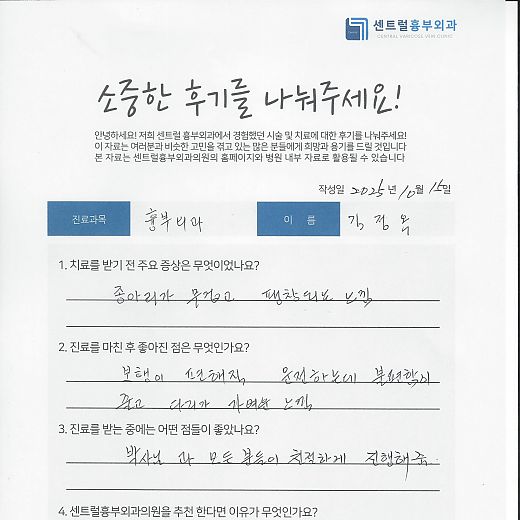 센트럴흉부외과
CENTRAL VARICOSE VEIN CLINIC
소중한 후기를 나눠주세요!
안녕하세요! 저희 센트럴 흉부외과에서 경험했던 시술 및 치료에 대한 후기를 나눠주세요!
이 자료는 여러분과 비슷한 고민을 겪고 있는 많은 분들에게 희망과 용기를 드릴 것입니다
본 자료는 센트럴흉부외과의원의 홈페이지와 병원 내부 자료로 활용될 수 있습니다
작성일 2025년 10월 15일
진료과목 흉부외과 이 름 김정옥
1. 치료를 받기 전 주요 증상은 무엇이었나요?
종아리가 무겁고 팽창되는 느낌
2. 진료를 마친 후 좋아진 점은 무엇인가요?
보행이 운전하는데 불편함이
줄고 다리가 가벼운 느낌
3. 진료를 받는 중에는 어떤 점들이 좋았나요?
박사님과 모든 분들이 친절하게 진행해줌.
4. 센트럴흉부외과의원을 추천 한다면 이유가 무엇인가요?